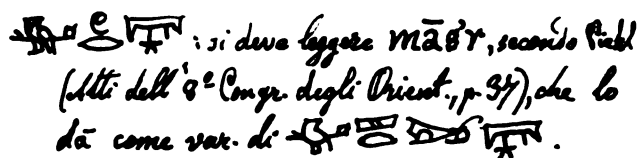 : si deve leggere māśr, secondo Piehl
(Atti dell' 8º Congr. degli Orient., p. 37), che lo
dà come var. di .